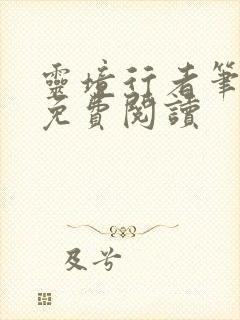 靈境行者筆
免費閱讀
及兮